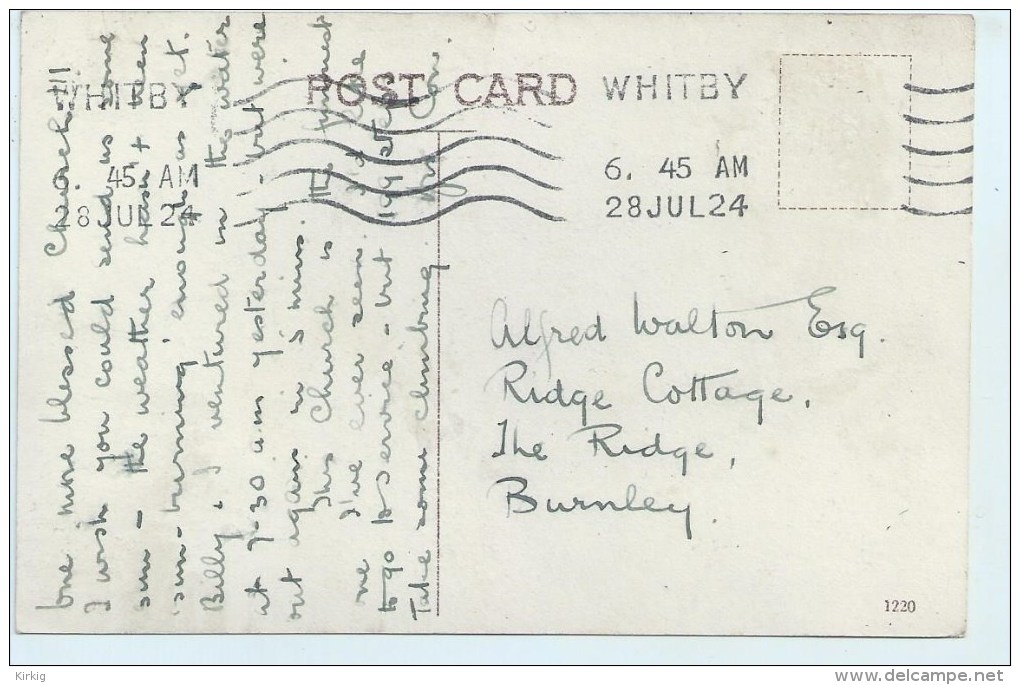 WHITBY
45 AM
28 JUL 24
POST CARD
WHITBY
6. 45 AM
28 JUL 24
One more blessed Church!!
I wish you could send us some
sun – the weather hasn't been
'sun-burning' enough as yet.
Billy & I ventured in the water
at 7-30 a.m yesterday – but were
out again in 5 mins.
This Church is the quaintest
I've ever seen. I'd like
me to go to service – but 199 steps
Take some climbing.
Alfred Walton Esq.
Ridge Cottage,
The Ridge,
Burnley.
1220
Kirkig
www.delcampe.net